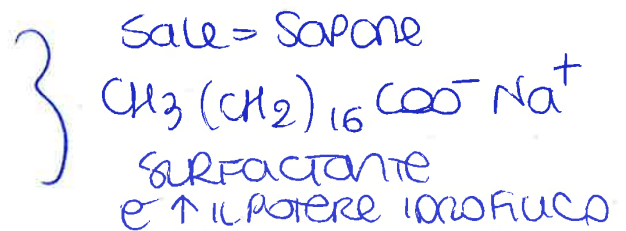 Sale = Sapone
CH3 (CH2) 16 COO⁻ Na⁺
SURFACTANTE
e ↑ IL POTERE IDROFILICO